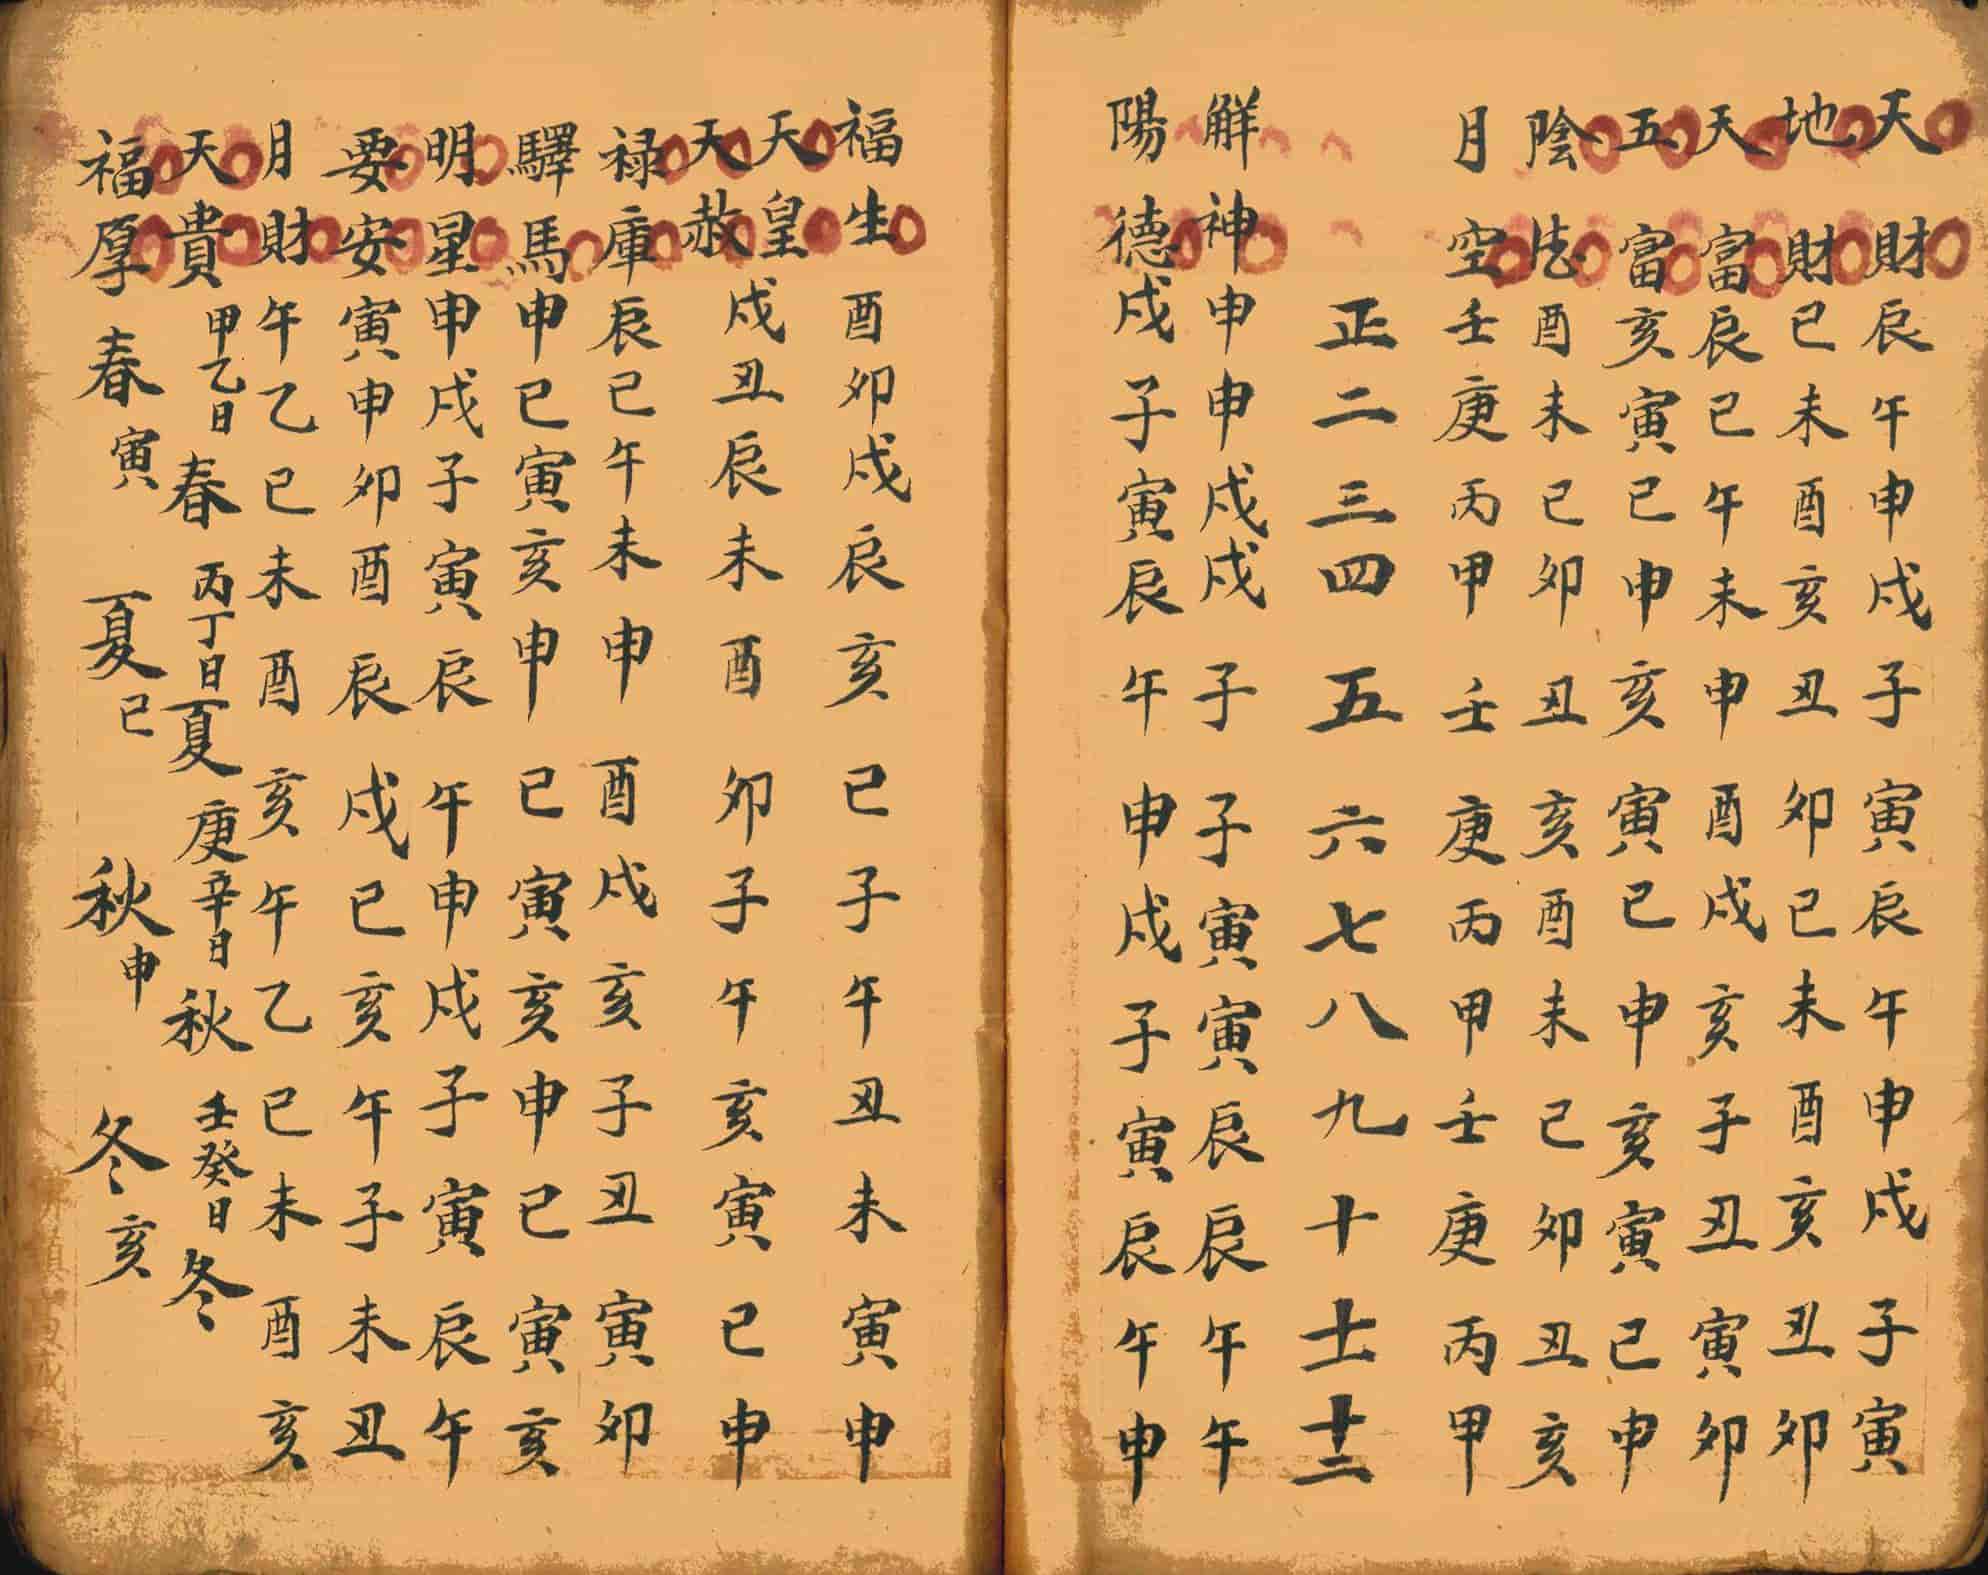 天財辰午申戌子寅辰午申戌子寅
地財巳未酉亥丑卯巳未酉亥丑卯
天富辰巳午未申酉戌亥子丑寅卯
五富亥寅巳申亥寅巳申亥寅巳申
陰德酉未巳卯丑亥酉未巳卯丑亥
月空壬庚丙甲壬庚丙甲壬庚丙甲
正二三四五六七八九十十一十二
觧神申申戌戌子子寅寅辰辰午午
陽德戌子寅辰午申戌子寅辰午申
福生酉卯戌辰亥巳子午丑未寅申
天皇
天赦戌丑辰未酉卯子午亥寅巳申
禄庫辰巳午未申酉戌亥子丑寅卯
驛馬申巳寅亥申巳寅亥申巳寅亥
明星申戌子寅辰午申戌子寅辰午
要安寅申卯酉辰戌巳亥午子未丑
月財午乙巳未酉亥午乙巳未酉亥
天貴甲乙日春丙丁日夏庚辛日秋壬癸日冬
福厚春寅夏巳秋申冬亥